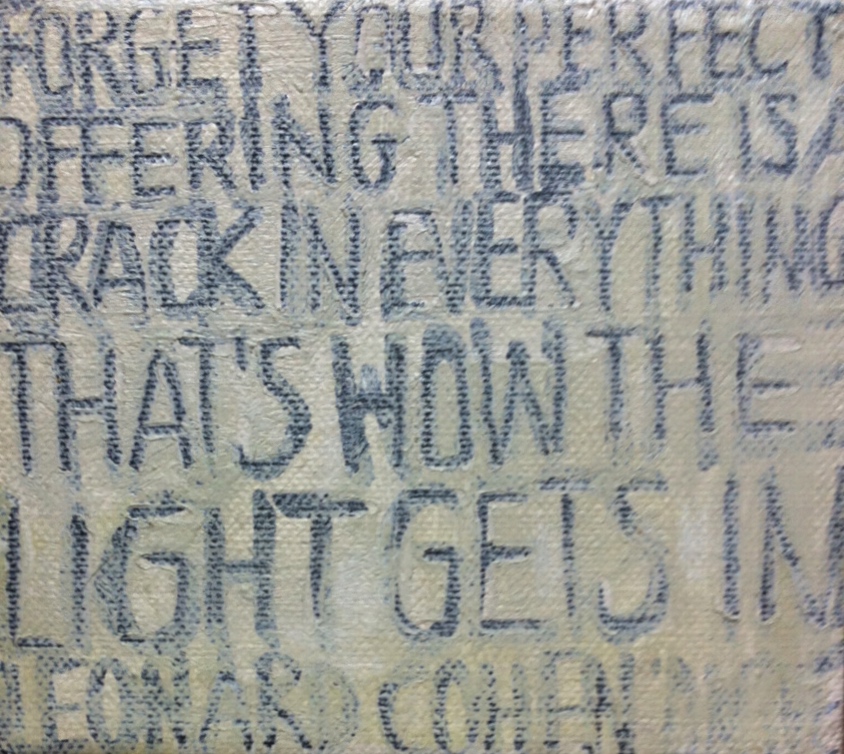 FORGET YOUR PERFECT
OFFERING THERE IS A
CRACK IN EVERYTHING
THAT'S HOW THE
LIGHT GETS IN
LEONARD COHEN